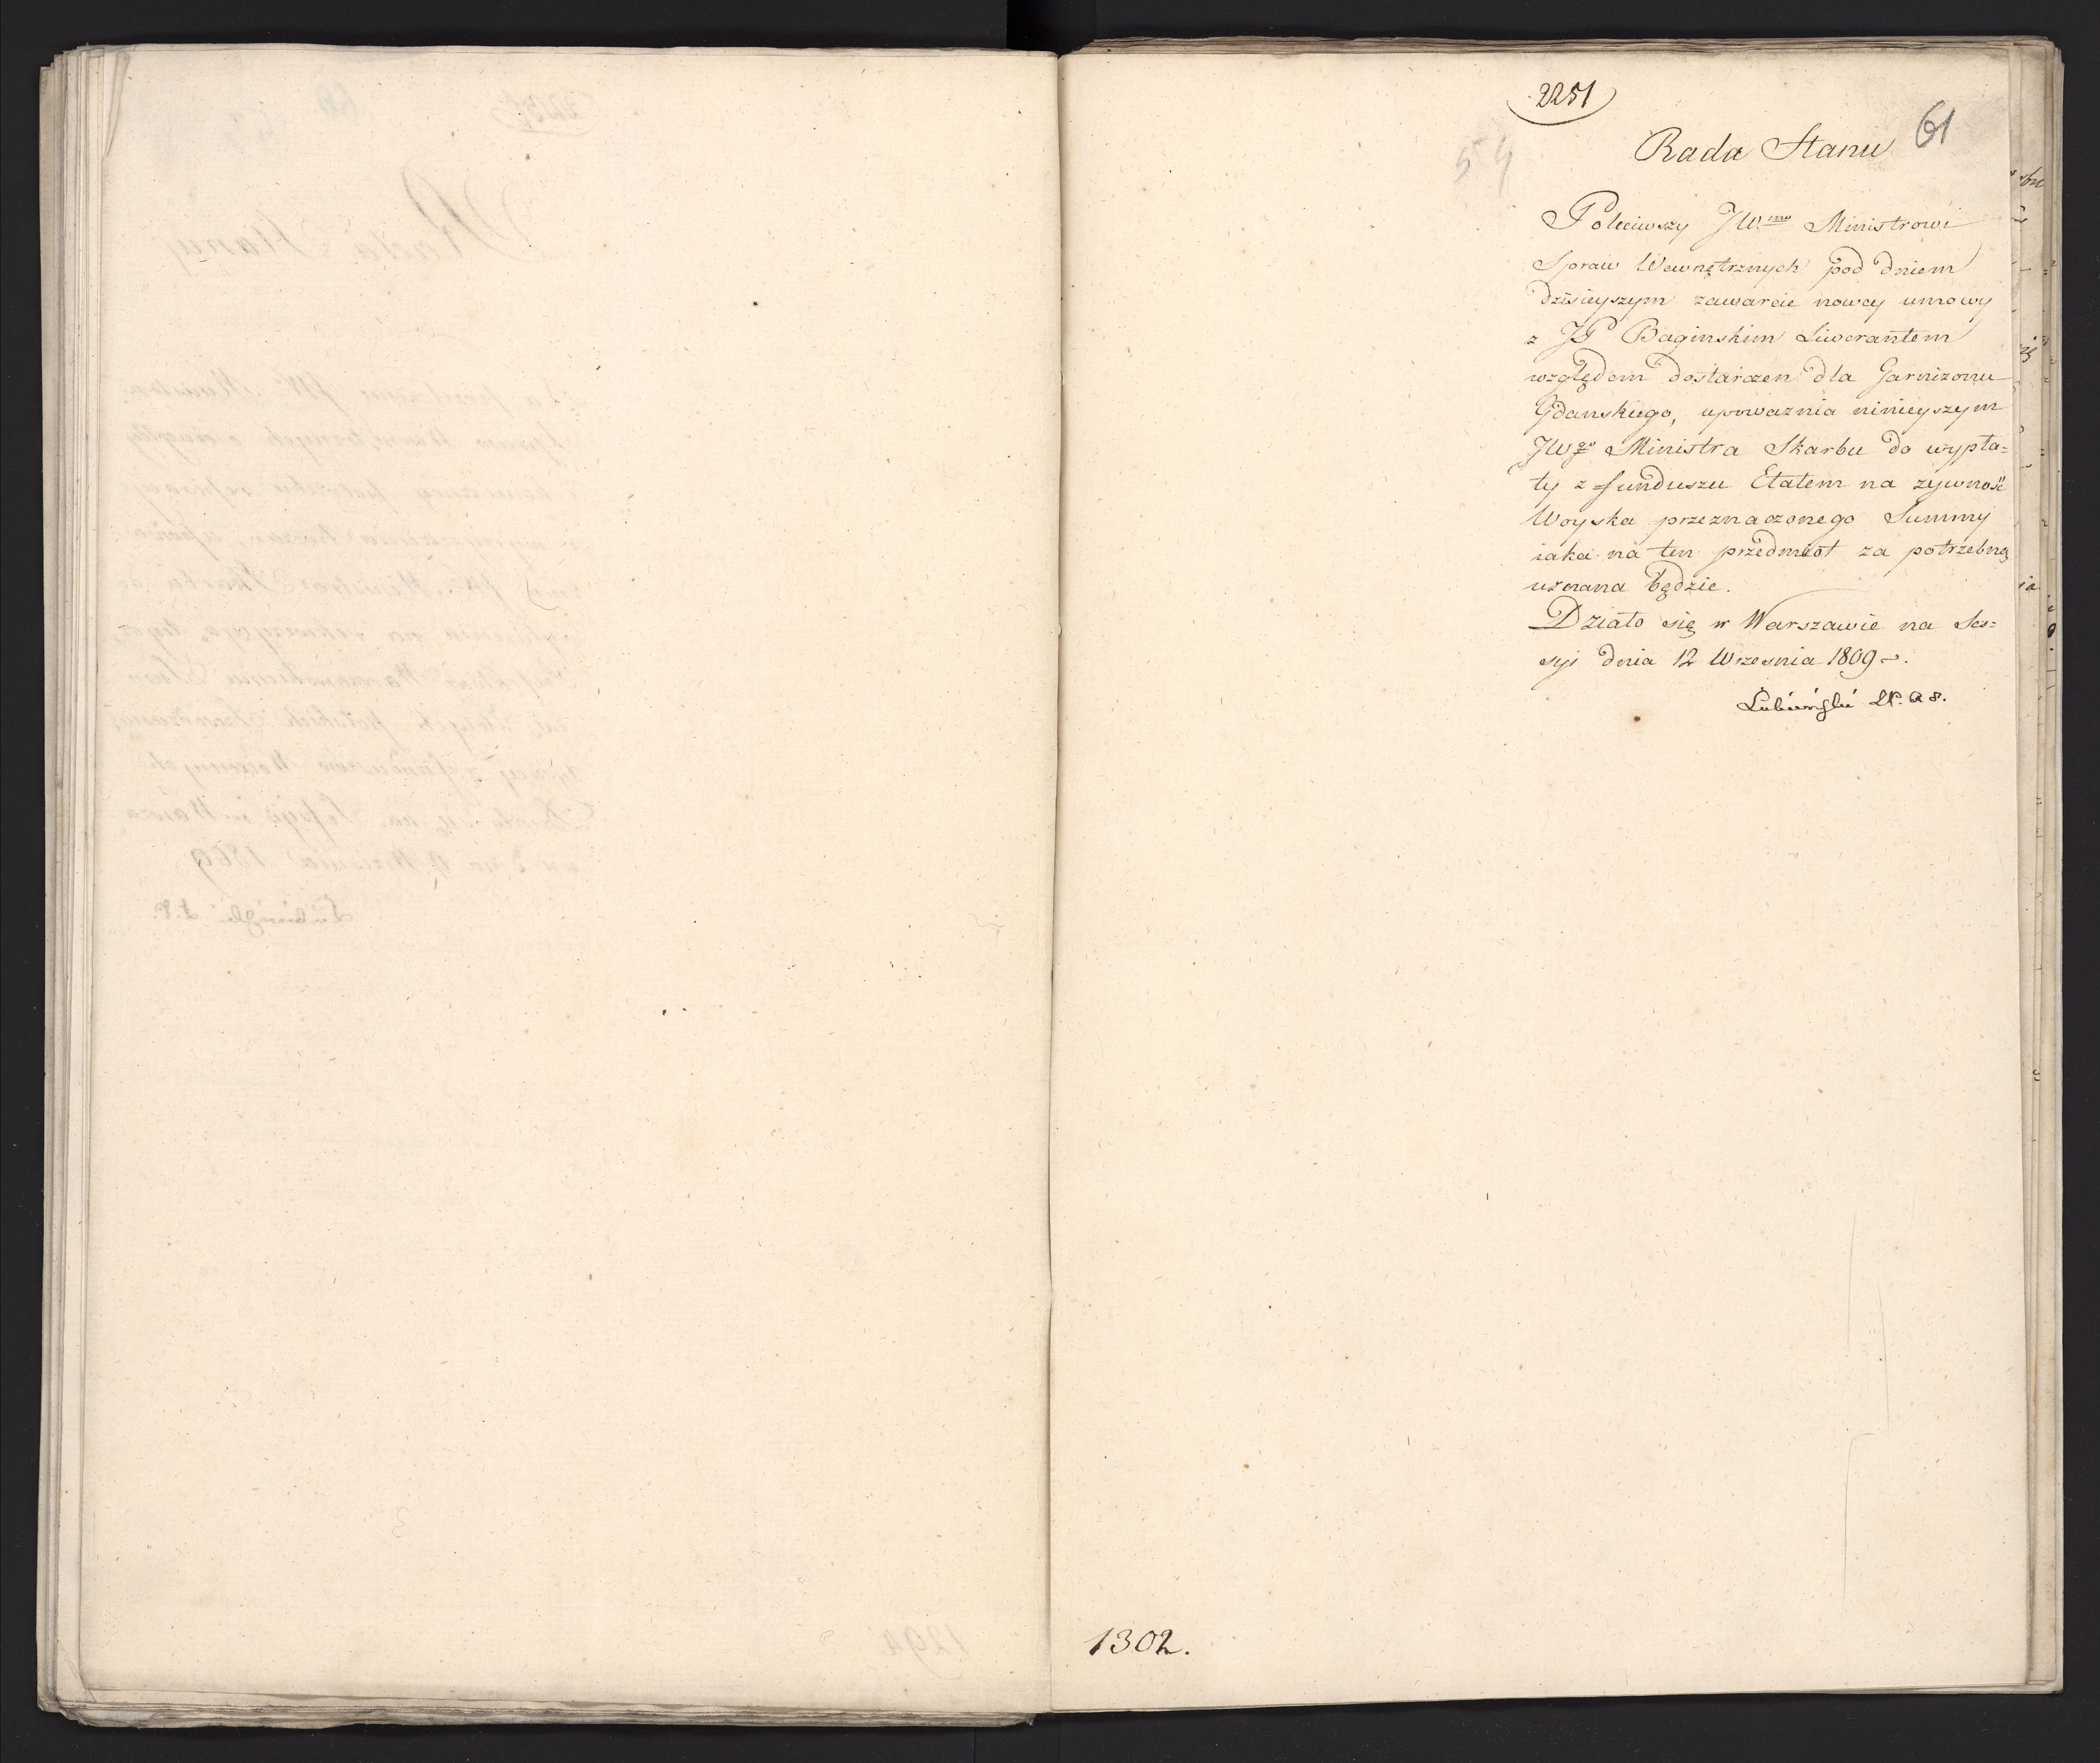 2251
61
54
Rada Stanu
Poleciwszy JW.mu Ministrowi
Spraw Wewnętrznych pod dniem
dzisieyszym zawarcie nowey umowy
z JP Baginskim Liwerantem
względem dostarczeń dla Garnizonu
Gdanskiego, upoważnia ninieyszym
JWgo Ministra Skarbu do wypła=
ty z funduszu Etatem na żywność
Woyska przeznaczonego Summy
iaka na ten przedmiot za potrzebną
uznana będzie.
Działo się w Warszawie na Ses=
syi dnia 12 Wrzesnia 1809
Łubieński
1302.